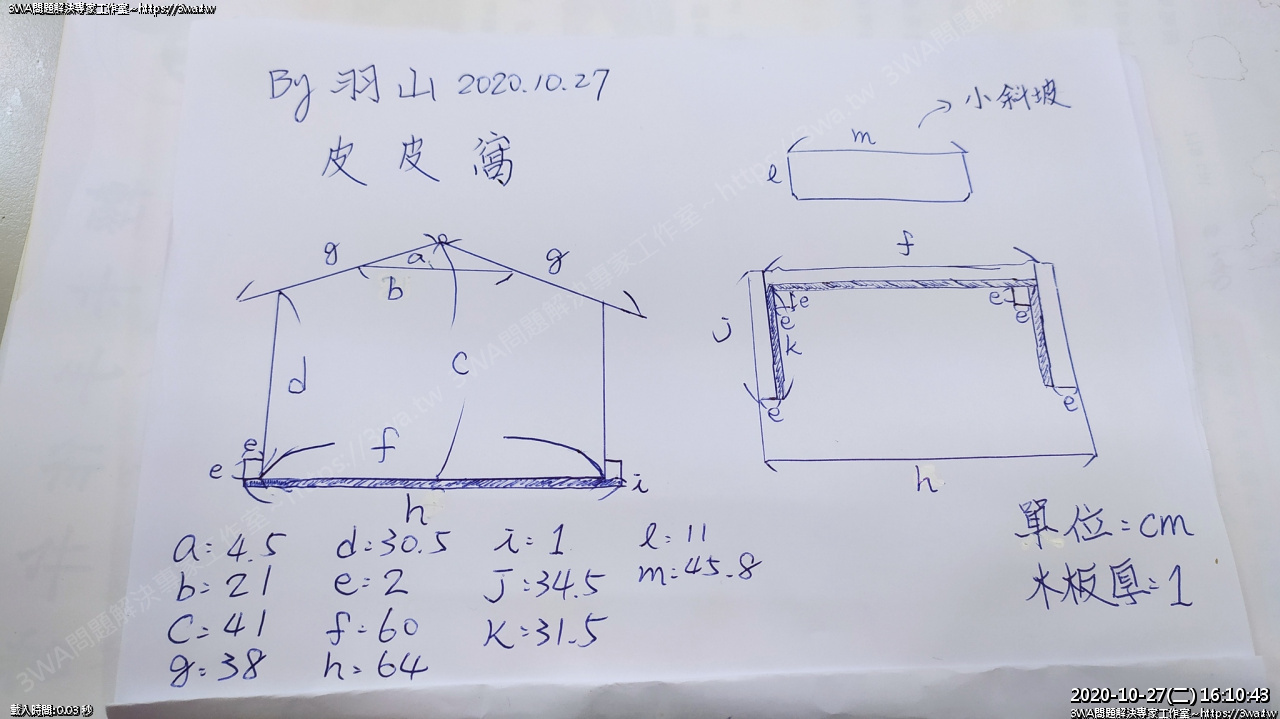 3WA問題解決專家工作室~https://3wa.tw
By 羽山 2020.10.27
皮皮窩
小斜坡
m
l
g
a
g
b
d
c
e
e
f
i
h
f
e
e
e
e
j
k
e
e
h
a=4.5 d=30.5 i=1 l=11
b=21 e=2 j=34.5 m=45.8
c=41 f=60 k=31.5
g=38 h=64
單位=cm
木板厚=1
載入時間:0.03 秒
2020-10-27(二) 16:10:43
3WA問題解決專家工作室~https://3wa.tw